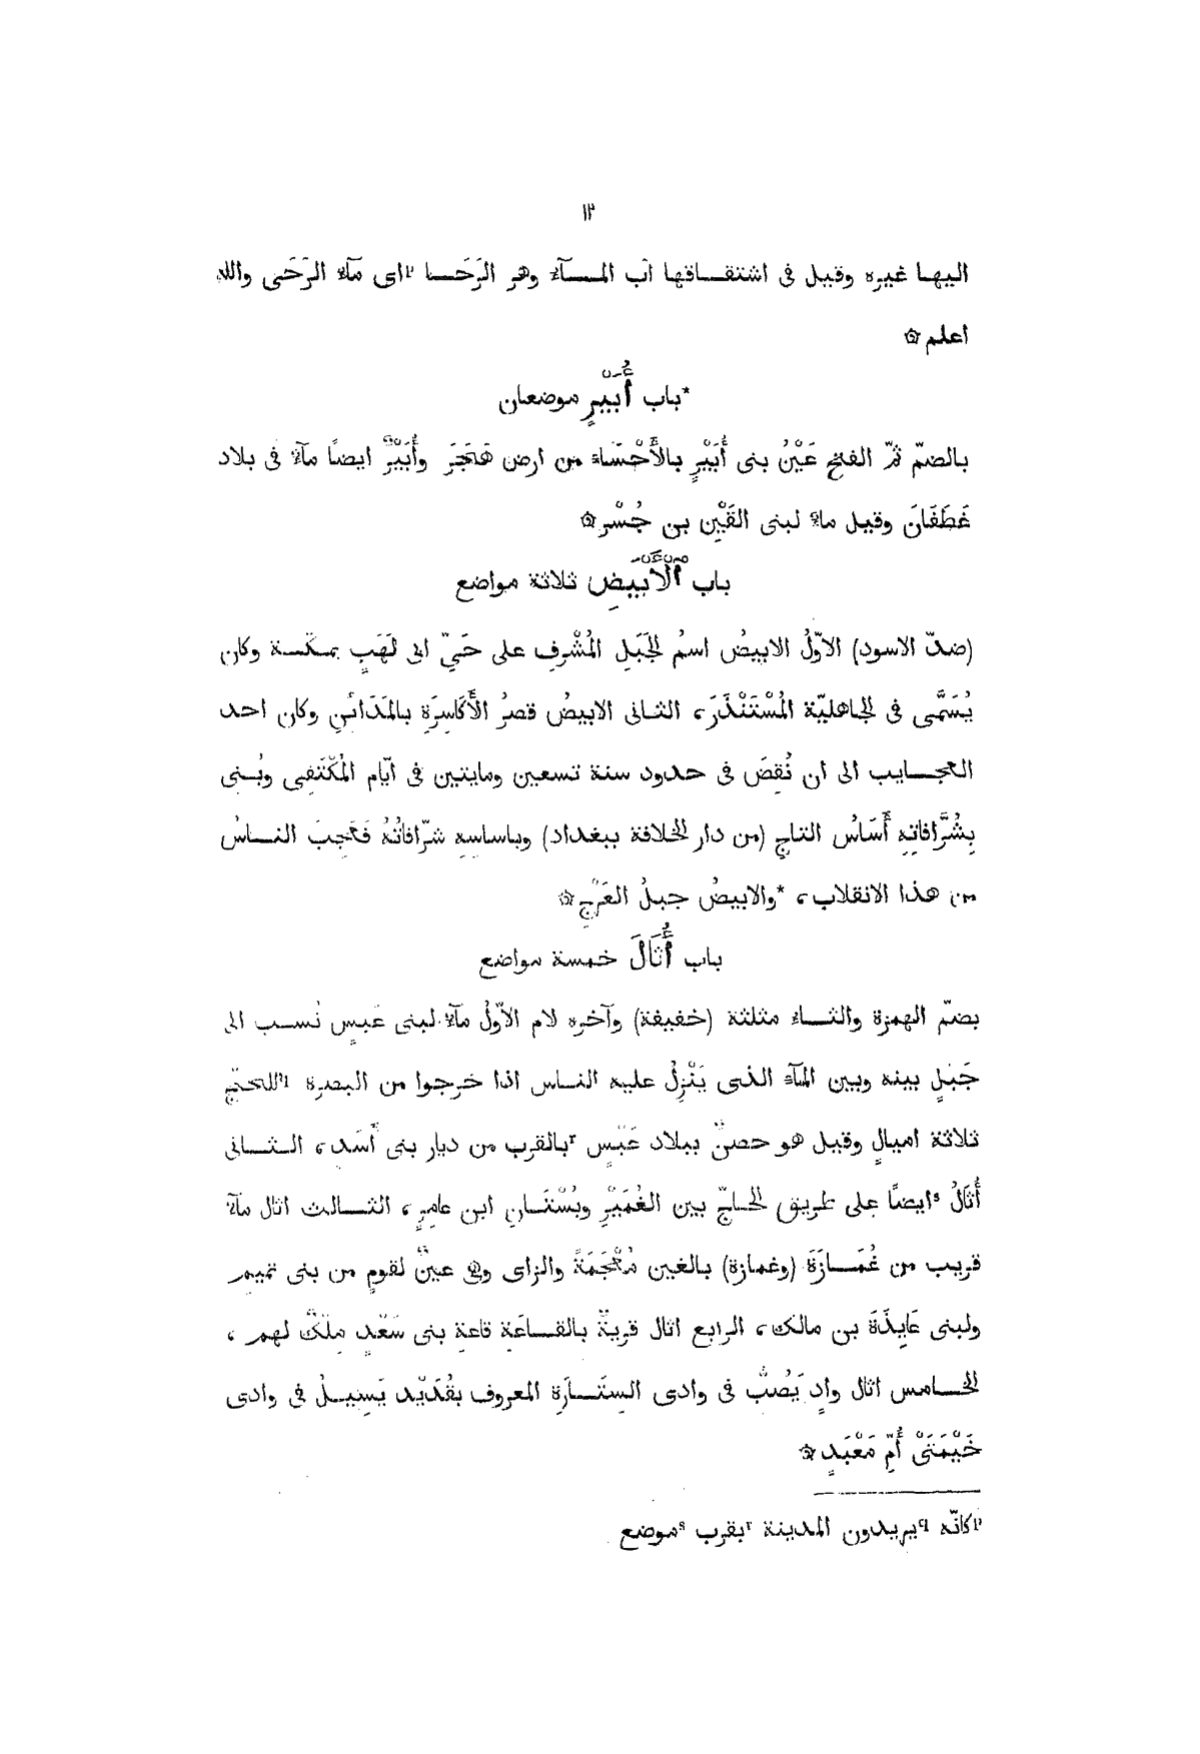 ١٢
اليها غيره وقيل فى اشتقاقها اب المآء وهو الرَحَا pاى مآء الرَحَى والله
اعلم ۞
*باب أُبَيْرٍ موضعان
بالضمّ ثمّ الفتح عَيْنُ بنى أُبَيْرٍ بالأَحْسَاء من ارض هَجَرَ وأُبَيْرٌ ايضًا مآء فى بلاد
غَطَفَانَ وقيل ماء لبنى القَيْنِ بن جُسْر ۞
باب الْأَبْيَضِ ثلاثة مواضع
(ضدّ الاسود) الاوّلُ الابيضُ اسمُ لجَبَلِ المُشْرِفِ على حَىِّ ابى لَهَبٍ بمكّة وكان
يُسَمَّى فى لجاهليّة المُسْتَنْذَرَ، الثانى الابيضُ قصرُ الأَكَاسِرَةِ بالمَدَائنِ وكان احد
العجايب الى ان نُقِضَ فى حدود سنة تسعين ومايتين فى ايّام المُكْتَفِى وبُنى
بِشُرَّافاتِهِ أَسَاسُ التاجِ (من دار لخلافة ببغداد) وباساسهِ شرّافاتُهُ فَعَجِبَ الناسُ
من هذا الانقلاب، *والابيضُ جبلُ العَرْجِ ۞
باب أُثَالَ خمسة مواضع
بضمّ الهمزة والثاء مثلثة (خفيفة) وآخره لام الاوّلُ مآء لبنى عَبسٍ نُسب الى
جَبَلٍ بينه وبين المآء الذى يَنْزِلُ عليه الناس اذا خرجوا من البصرة qللحجّ
ثلاثة اميالٍ وقيل هو حصنٌ ببلاد عَبْسٍ rبالقرب من ديار بنى أَسَد، الثانى
أُثَالُ sايضًا على طريق لحاجّ بين الغُمَيْرِ وبُسْتَانِ ابن عامِرٍ، الثالث اثال مآء
قريب من غُمَازَةَ (وغمازة) بالغين مُعْجَمَةً والزاى وهى عينٌ لقومٍ من بنى تميم
ولبنى عَايِذَةَ بن مالك، الرابع اثال قريةٌ بالقاعَةِ قاعةِ بنى سَعْدٍ مِلْكٌ لهم،
لخامس اثال وادٍ يَصُبُّ فى وادى السِتَارَةِ المعروف بقُدَيْد يَسِيلُ فى وادى
خَيْمَتَىْ أُمِّ مَعْبَدٍ ۞
pكانّه qيريدون المدينة rبقرب sموضع